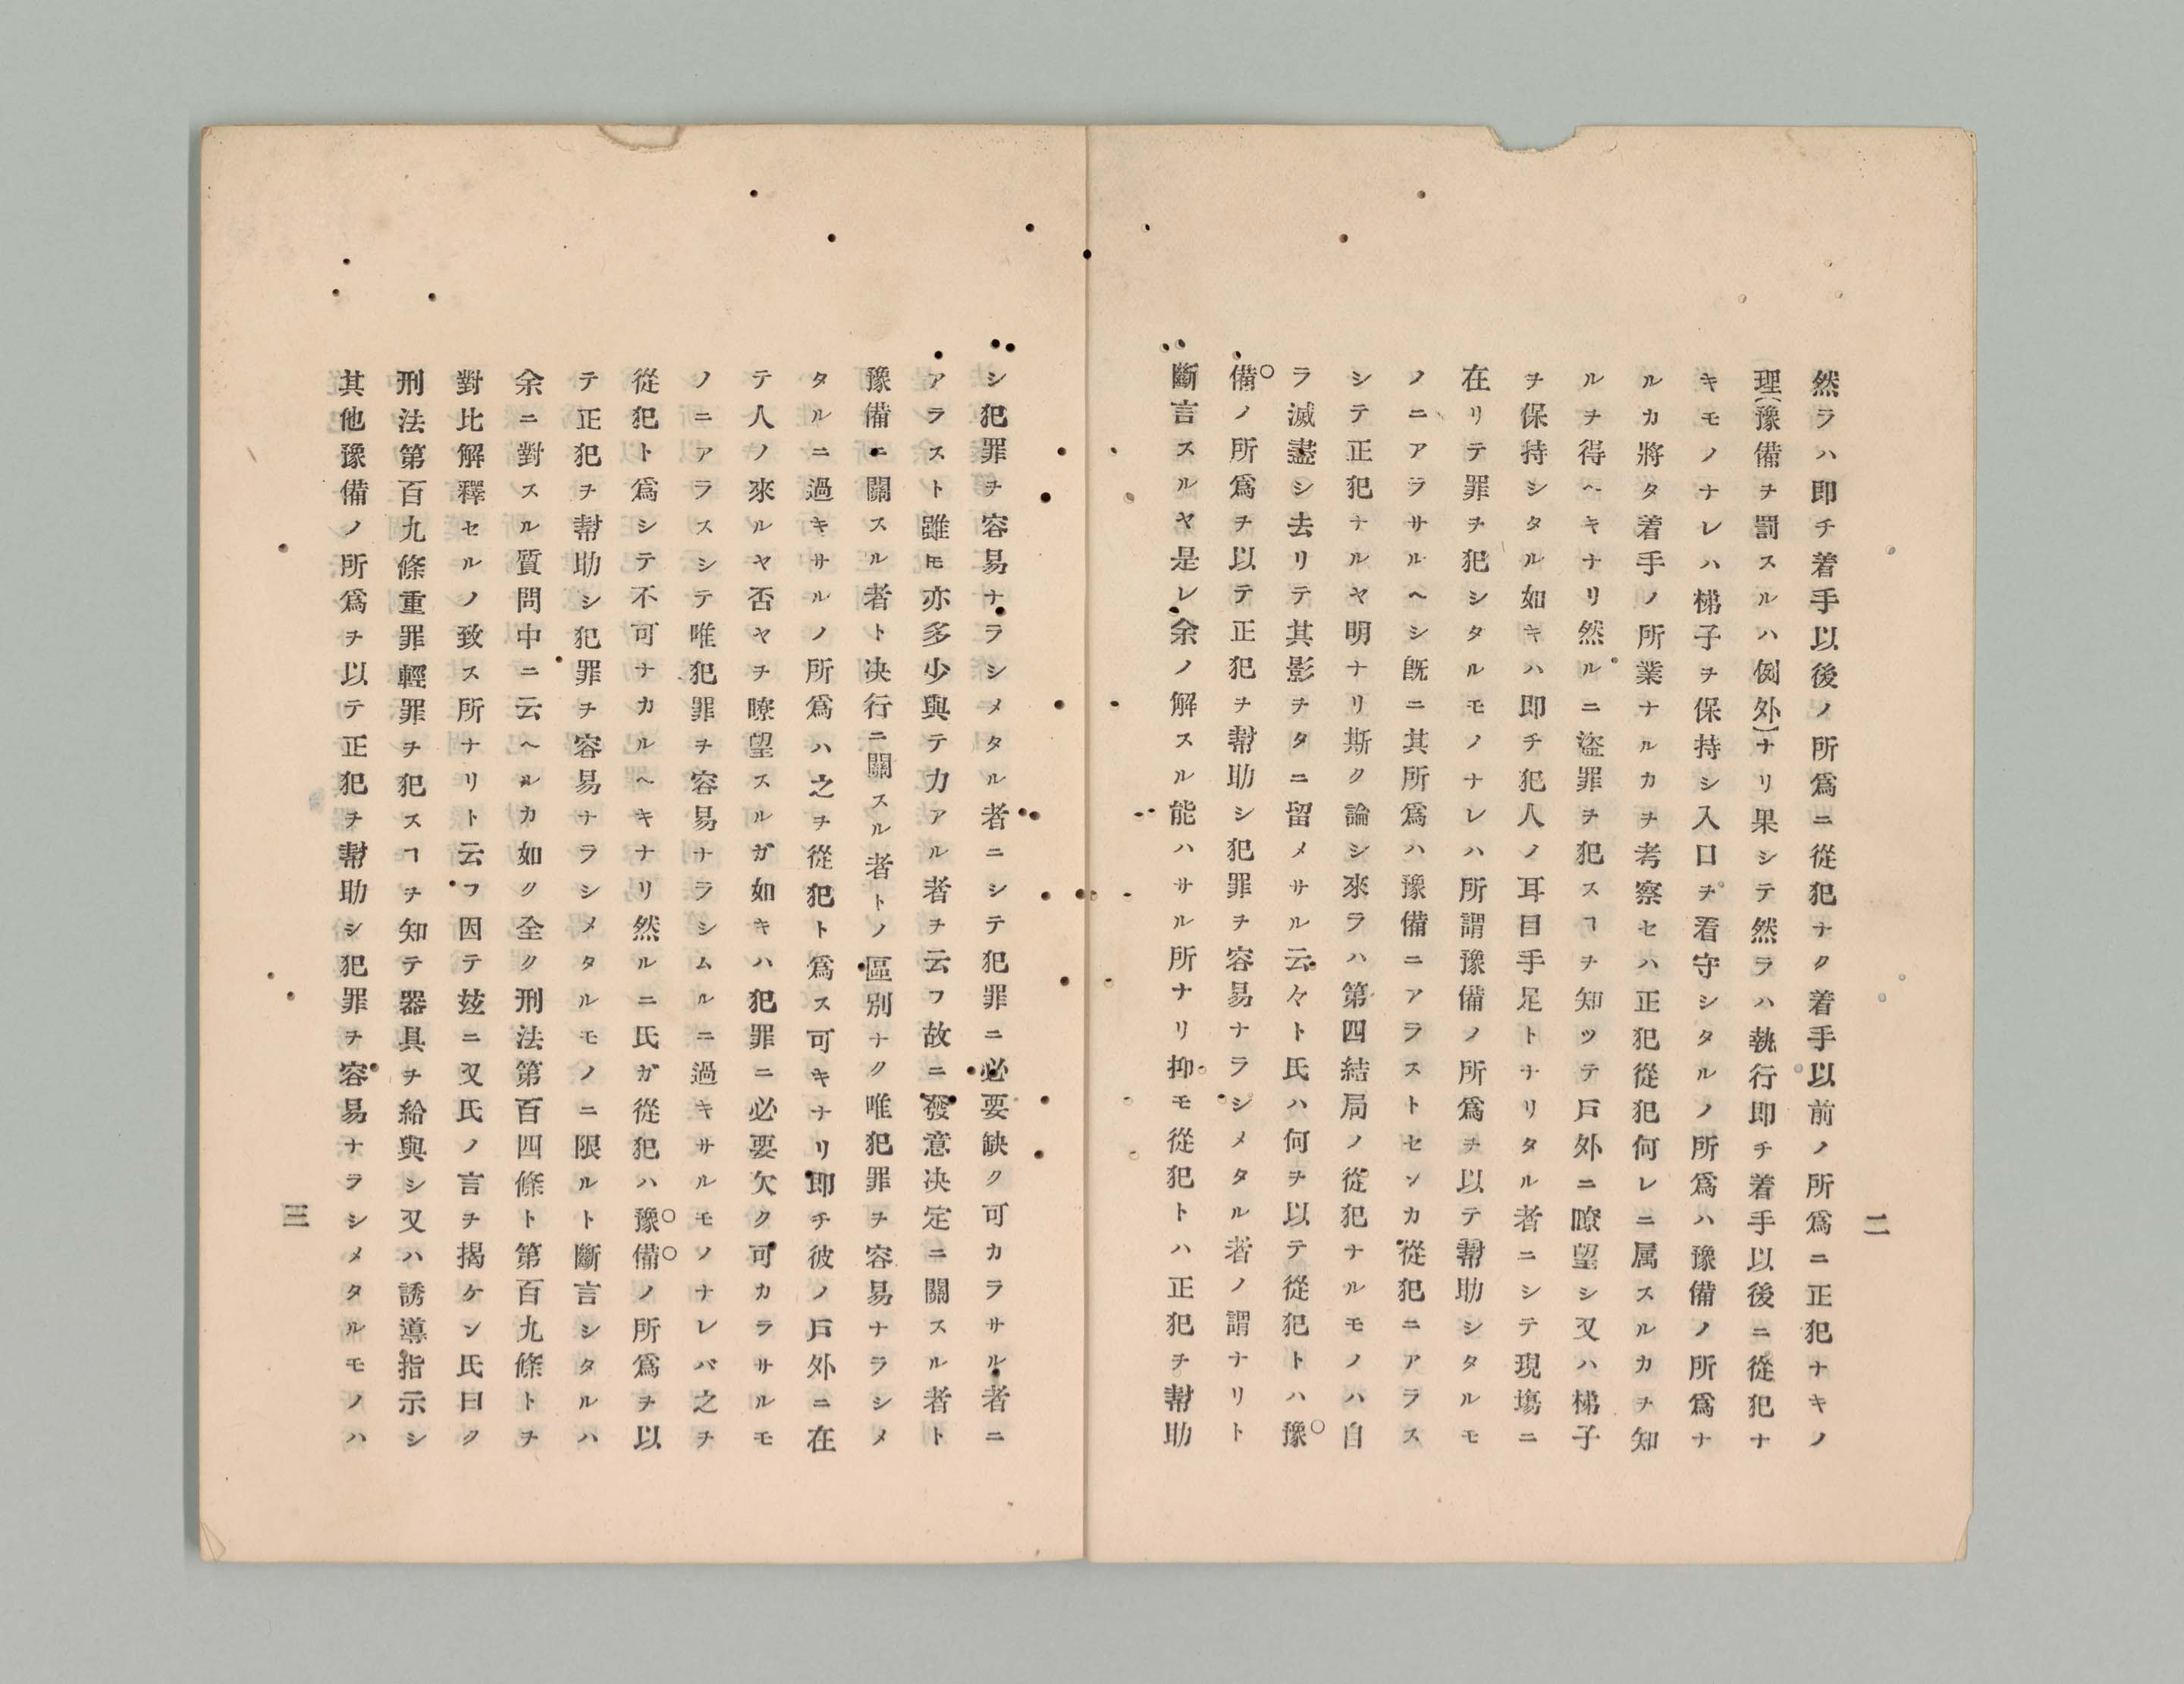 二
然ラハ即チ着手以後ノ所爲ニ從犯ナク着手以前ノ所爲ニ正犯ナキノ
理(豫備ヲ罰スルハ例外)ナリ果シテ然ラハ執行即チ着手以後ニ從犯ナ
キモノナレハ梯子ヲ保持シ入口ヲ看守シタルノ所爲ハ豫備ノ所爲ナ
ルカ將タ着手ノ所業ナルカヲ考察セハ正犯從犯何レニ属スルカヲ知
ルヲ得ヘキナリ然ルニ盜罪ヲ犯スヿヲ知ツテ戸外ニ瞭望シ又ハ梯子
ヲ保持シタル如キハ即チ犯人ノ耳目手足トナリタル者ニシテ現塲ニ
在リテ罪ヲ犯シタルモノナレハ所謂豫備ノ所爲ヲ以テ幇助シタルモ
ノニアラサルヘシ既ニ其所爲ハ豫備ニアラストセンカ從犯ニアラス
シテ正犯ナルヤ明ナリ斯ク論シ來ラハ第四結局ノ從犯ナルモノハ自
ラ滅盡シ去リテ其影ヲタニ留メサル云々ト氏ハ何ヲ以テ從犯トハ豫
備ノ所爲ヲ以テ正犯ヲ幇助シ犯罪ヲ容易ナラシメタル者ノ謂ナリト
斷言スルヤ是レ余ノ解スル能ハサル所ナリ抑モ從犯トハ正犯ヲ幇助
シ犯罪ヲ容易ナラシメタル者ニシテ犯罪ニ必要缺ク可カラサル者ニ
アラスト雖𪜈亦多少與テ力アル者ヲ云フ故ニ發意决定ニ關スル者ト
豫備ニ關スル者ト决行ニ關スル者トノ區別ナク唯犯罪ヲ容易ナラシメ
タルニ過キサルノ所爲ハ之ヲ從犯ト爲ス可キナリ即チ彼ノ戸外ニ在
テ人ノ來ルヤ否ヤヲ瞭望スルガ如キハ犯罪ニ必要欠ク可カラサルモ
ノニアラスシテ唯犯罪ヲ容易ナラシムルニ過キサルモノナレバ之ヲ
從犯ト爲シテ不可ナカルヘキナリ然ルニ氏ガ從犯ハ豫備ノ所爲ヲ以
テ正犯ヲ幇助シ犯罪ヲ容易ナラシメタルモノニ限ルト斷言シタルハ
余ニ對スル質問中ニ云ヘルカ如ク全ク刑法第百四條ト第百九條トヲ
對比解釋セルノ致ス所ナリト云フ因テ玆ニ又氏ノ言ヲ揭ケン氏曰ク
刑法第百九條重罪輕罪ヲ犯スヿヲ知テ器具ヲ給與シ又ハ誘導指示シ
其他豫備ノ所爲ヲ以テ正犯ヲ幇助シ犯罪ヲ容易ナラシメタルモノハ
三